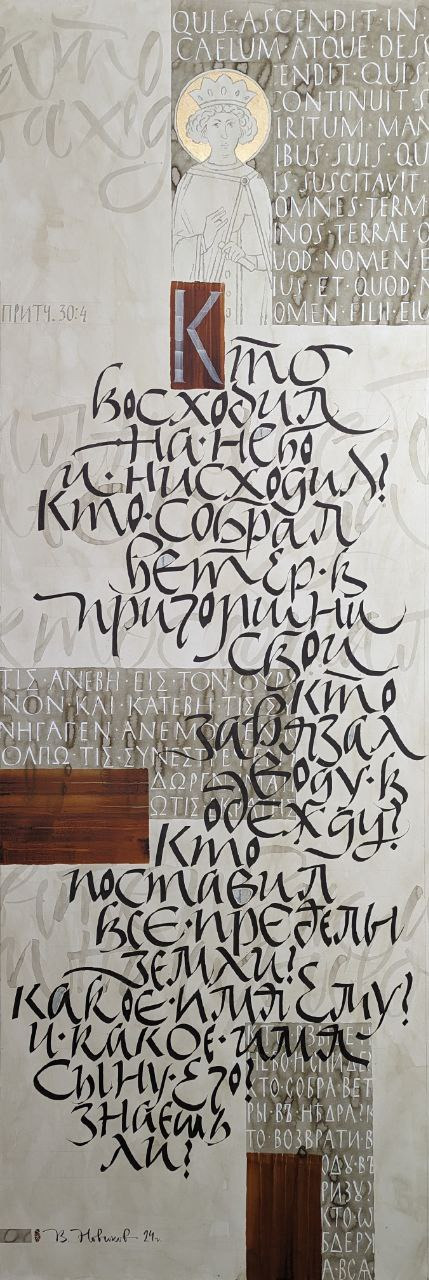 QUIS·ASCENDIT·IN·
CAELUM·ATQUE·DESC
ENDIT·QUIS·
CONTINUIT·S
IRITUM·MAN
IBUS·SUIS·QU
IS·SUSCITAVIT·
OMNES·TERM
INOS·TERRAE·Q
UOD·NOMEN·E
IUS·ET·QUOD·N
OMEN·FILII·EIU
ПРИТЧ. 30:4
Кто
восходил
на·небо
и·нисходил?
Кто·собрал
ветер·в
пригоршни
свои
кто
завязал
воду·в
одежду?
Кто
поставил
все·пределы
земли?
какое·имя·ему?
и·какое·имя
Сыну·Его?
знаешь
ли?
ΤΙΣ·ΑΝΕΒΗ·ΕΙΣ·ΤΟΝ·ΟΥΡ
ΝΟΝ·ΚΑΙ·ΚΑΤΕΒΗ·ΤΙΣ·Σ
ΝΗΓΑΓΕΝ·ΑΝΕΜ
ΟΛΠΩ·ΤΙΣ·ΣΥΝΕΣΤΡΕ
КТО·СОБРА·ВЕТ
РЫ·ВЪ·НѢДРА?К
ТО·ВОЗВРАТИ·В
ОДУ·ВЪ
РИЗУ?
КТО·Ѡ
БДЕРЖ
А·ВСА
В. Новиков 24г.